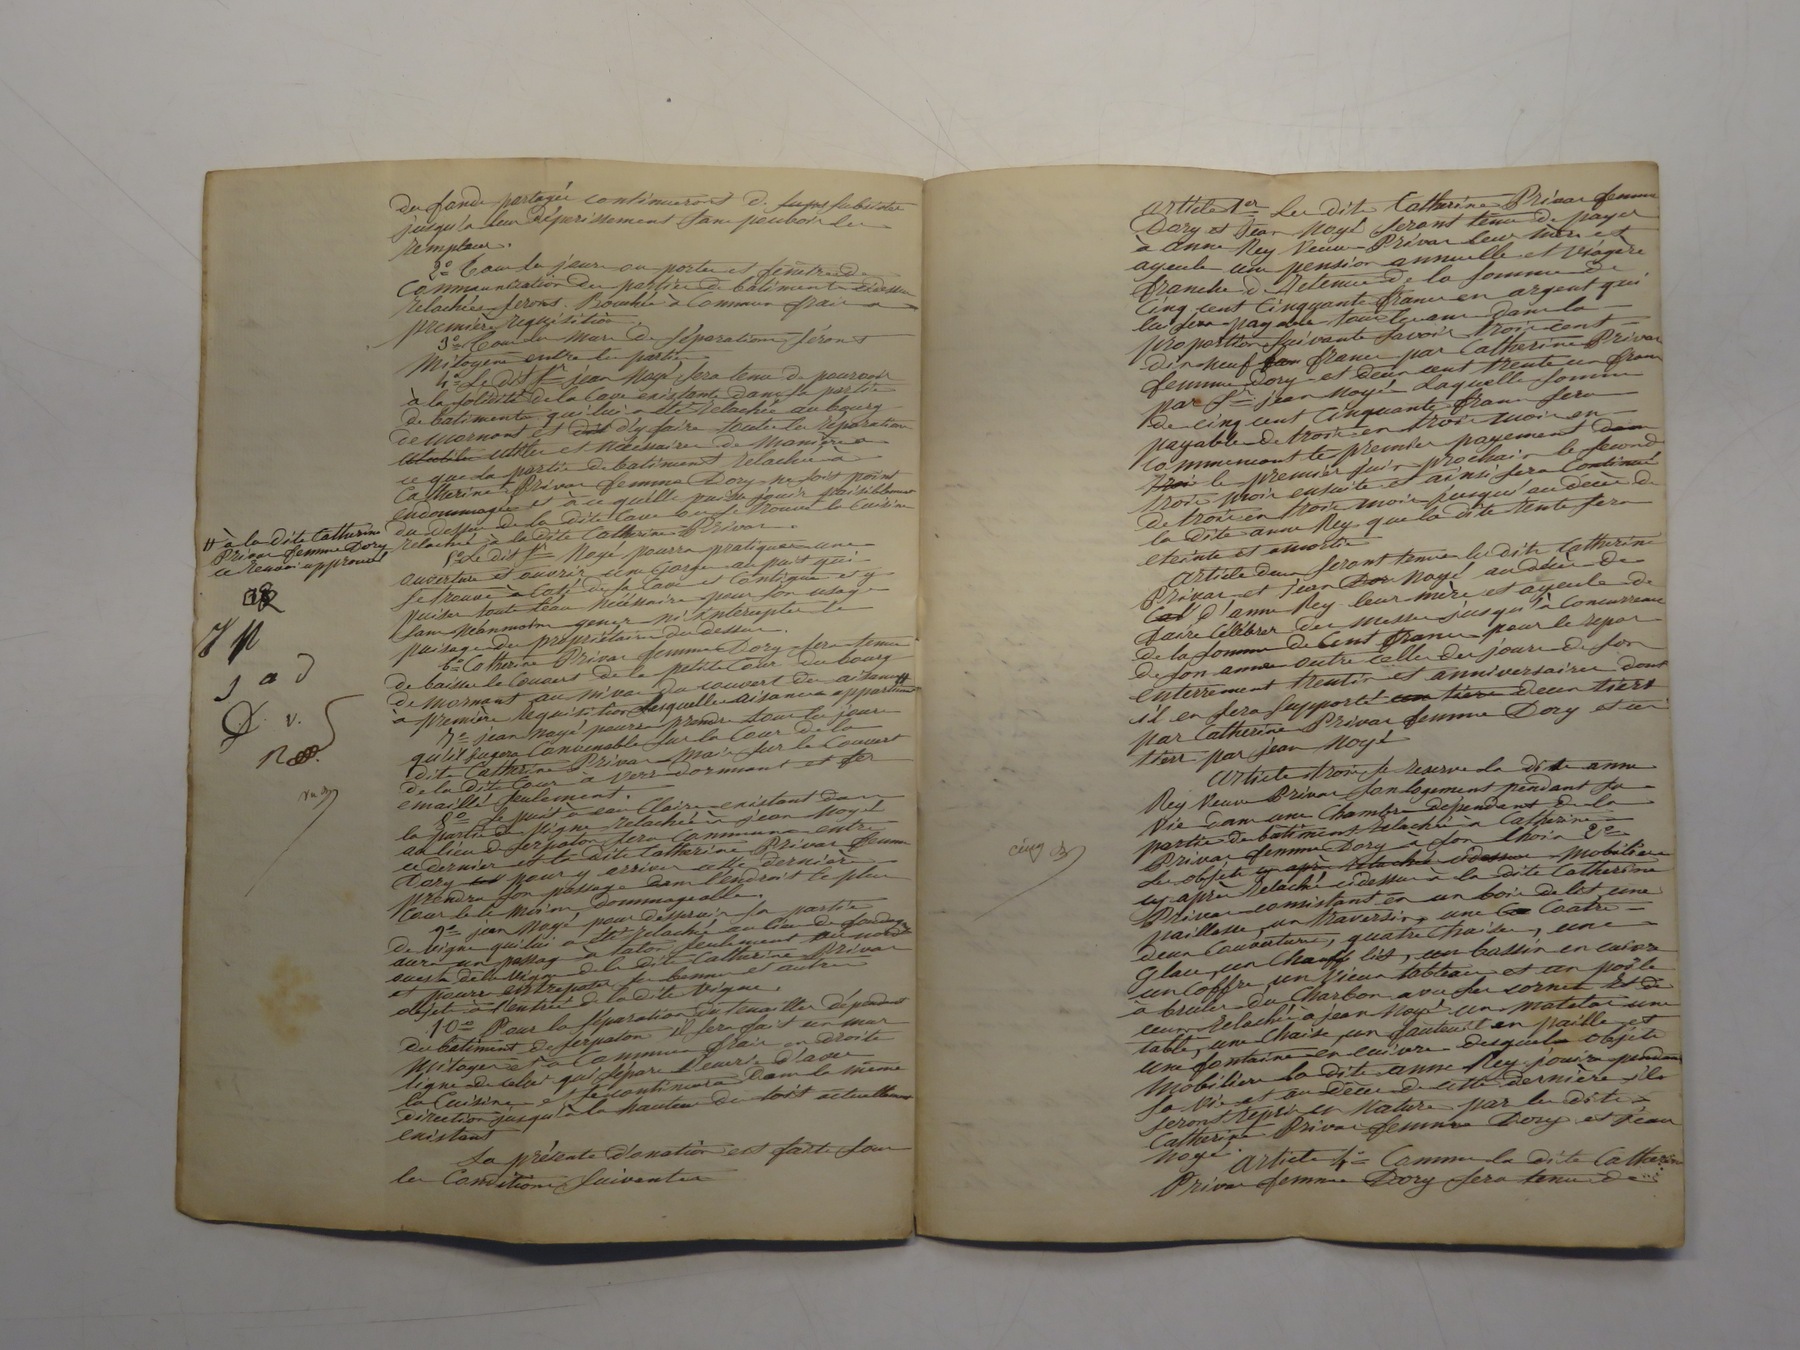 du fonds partagée continueront de subsister
jusqu'à leur dépérissement sans pouvoir les
remplacer.
2° Tous les jours ou portes et fenêtres de
communication des parties de batiments
relachées seront Bouchés à Commun frais a
première requisition.
3° Tous les murs de séparation seront
mitoyens entre les parties
4° Le dit Sr jean Noyé sera tenu de pourvoir
à la solidité de la Cave existante dans la partie
de batiments qui lui a été relachée au bourg
de mornant et d'y faire toutes les réparations
utiles et nécessaires de manière a
ce que la partie de batiments relachée à
Catherine Privas femme Dory ne soit point
endommagée et à ce qu'elle puisse jouir paisiblement
du dessus de la dite Cave ou se trouve la Cuisine
relachée à la dite Catherine Privas.
5° Le dit Sr Noyé pourra pratiquer une
ouverture et ouvrir une Gorge au puit qui
se trouve à Coté de sa Cave et Contigue et y
puiser toute l'eau nécessaire pour son usage
sans néanmoins gener ni intercepter le
puisage du propriétaire du dessus.
6° Catherine Privas femme Dory sera tenue
de baisser le Couvert de la petite Cour du bourg
de mornant au niveau du couvert des aisances #
à première requisition lesquelles aisances appartiennent
7° jean Noyé pourra prendre tous les jours
qu'il jugera Convenable sur la Cour de la
dite Catherine Privas mais sur le Couvert
de la dite Cour à verre dormant et fer
emaillé seulement.
8° Le puit à eau Claire existant dans
la partie de vigne relachée à jean Noyé
au lieu de serpaton sera Commune entre
ce dernier et la dite Catherine Privas femme
Dory pour y arriver cette dernière
prendra son passage dans l'endroit le plus
Court le moins dommageable.
9° jean Noyé pour desservir sa partie
de vigne qui lui a été relachée au lieu de
aura un passage à talon seulement au
ouest de la vigne de la dite Catherine Privas
et pourra entreposer ses bennes et autres
objets à l'entrée de la dite vigne.
10° Pour la séparation du tenailler dépendant
du batiment de serpaton il sera fait un mur
mitoyen et à Commun frais en droite
ligne de celui qui sépare l'écurie d'avec
la Cuisine et se continuera dans la même
direction jusqu'à la hauteur du toit actuellement
existant
La présente donation est faite sous
les Conditions Suivantes
# à la dite Catherine
Privas femme Dory
ce renvoi approuvé
J a D
D. v.
cinq
article 1er Les dits Catherine Privas femme
Dory et Jean Noyé seront tenus de payer
a anne Rey Veuve Privas leur mère et
ayeule une pension annuelle et viagère
franche de Retenue de la somme de
Cinq cent Cinquante francs en argent qui
lui sera payée tous les ans dans la
proportion suivante savoir trois cent
dix neuf francs par Catherine Privas
femme Dory et deux cent trente un francs
par Sr jean Noyé Laquelle somme
de cinq cent Cinquante francs sera
payable de trois en trois mois en
commencant le premier payement
le premier juin prochain le second
trois mois ensuite et ainsi sera Continué
de trois en trois mois jusqu'au deces de
la dite anne Rey que la dite rente sera
eteinte et amortie
Article deux seront tenus les dits Catherine
Privas et Jean Noyé au deces de
d'anne Rey leur mère et ayeule de
faire Célébrer des messes jusqu'à Concurrence
de la somme de Cent francs pour le repos
de son ame outre Celles des jours de son
enterrement trentin et anniversaires dont
il en sera supporté deux tiers
par Catherine Privas femme Dory et un
tiers par jean Noyé
Article trois se reserve la dite anne
Rey Veuve Privas son logement pendant sa
vie dans une Chambre dépendant de la
partie de bâtiment relachée à Catherine
Privas femme Dory à son choix 2°
Les objets mobiliers
cy après relachés cidessus à la dite Catherine
Privas consistant en un bois de lit une
paillasse, un traversin, une Coatre
deux Couvertures, quatre Chaises, une
glace, un lit, un bassin en cuivre
un Coffre, un Vieux tableau et un poële
à bruler du Charbon avec ses cornets Et de
ceux relachés a jean Noyé un matelas une
table, une Chaise, un fauteuil en paille et
une fontaine en cuivre desquels objets
mobiliers la dite anne Rey jouira pendant
sa vie et au décès de cette dernière ils
seront repris en Nature par les dits
Catherine Privas femme Dory et Jean
Noyé.
Article 4° Comme la dite Catherine
Privas femme Dory sera tenue de